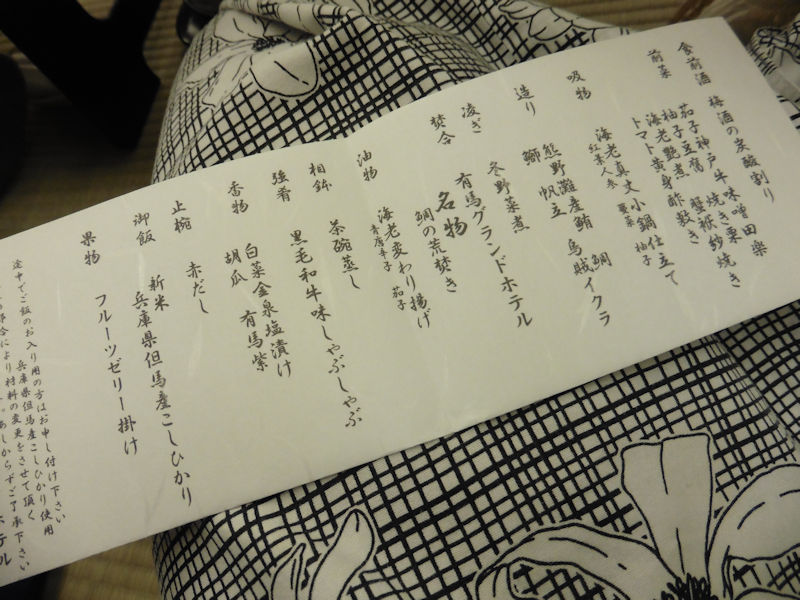 食前酒 梅酒の炭酸割り
前菜 茄子神戸牛味噌田楽
柚子豆腐 蟹袱紗焼き
海老艶煮 焼き栗
トマト黄身酢敷き
吸物 海老真丈小鍋仕立て
紅葉人参 柚子
造り 熊野灘産鮪 鯛
鰤 帆立 烏賊イクラ
凌ぎ 冬野菜煮
焚合 有馬グランドホテル
名物 鯛の荒焚き
油物 海老変わり揚げ
青唐辛子 茄子
相鉢 茶碗蒸し
強肴 黒毛和牛味しゃぶしゃぶ
香物 白菜金泉塩漬け
胡瓜 有馬紫
止椀 赤だし
御飯 新米 兵庫県但馬産こしひかり
果物 フルーツゼリー掛け
途中でご飯のお入り用の方はお申し付け下さい
兵庫県但馬産こしひかり使用
都合により材料の変更をさせて頂く
あしからずご了承下さい
ホテル